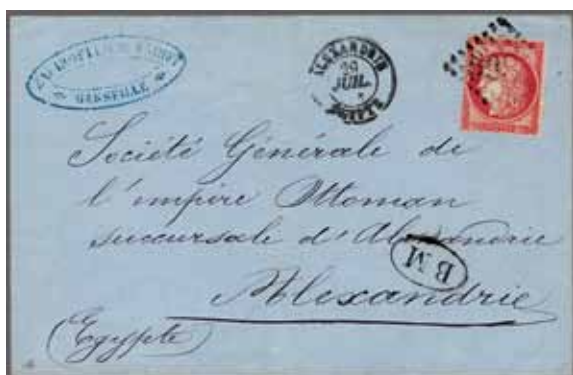 MARSEILLE
ALEXANDRIE
JUIL.
EGYPTE
Société Générale de
l'empire Ottoman
succursale d'Alexandrie
BM
Alexandrie
(Egypte)